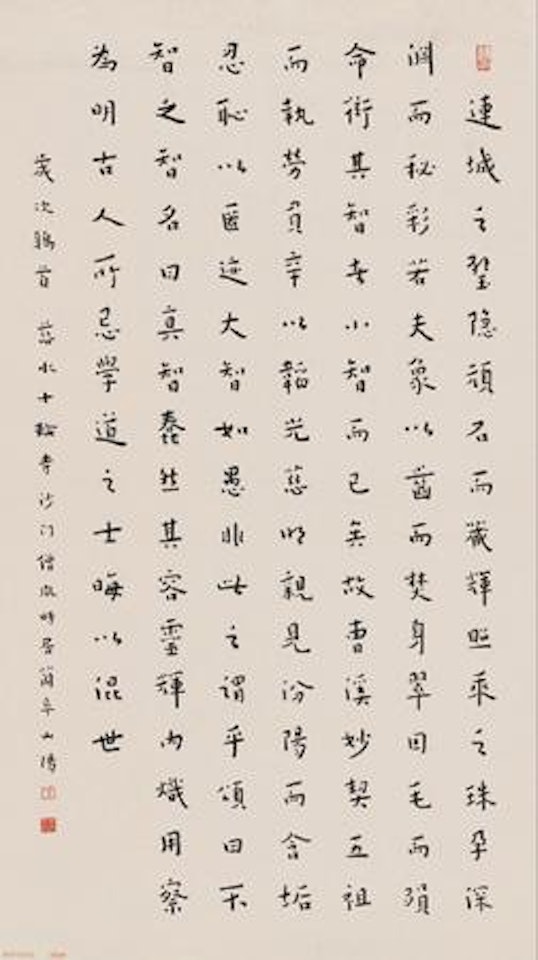 連城之璧隱頑石而藏輝照乘之珠孕深
淵而秘彩若夫象以齒而焚身翠因毛而殞
命衒其智者小智而已矣故曹溪妙契五祖
而執勞負辛以韜光慈明親見汾陽而含垢
忍恥以匿迹大智如愚非此之謂乎頌曰不
智之智名曰真智蠢然其容靈輝內熾用察
為明古人所忌學道之士晦以混世
歲次鶉首 慈水十輪寺沙门僧